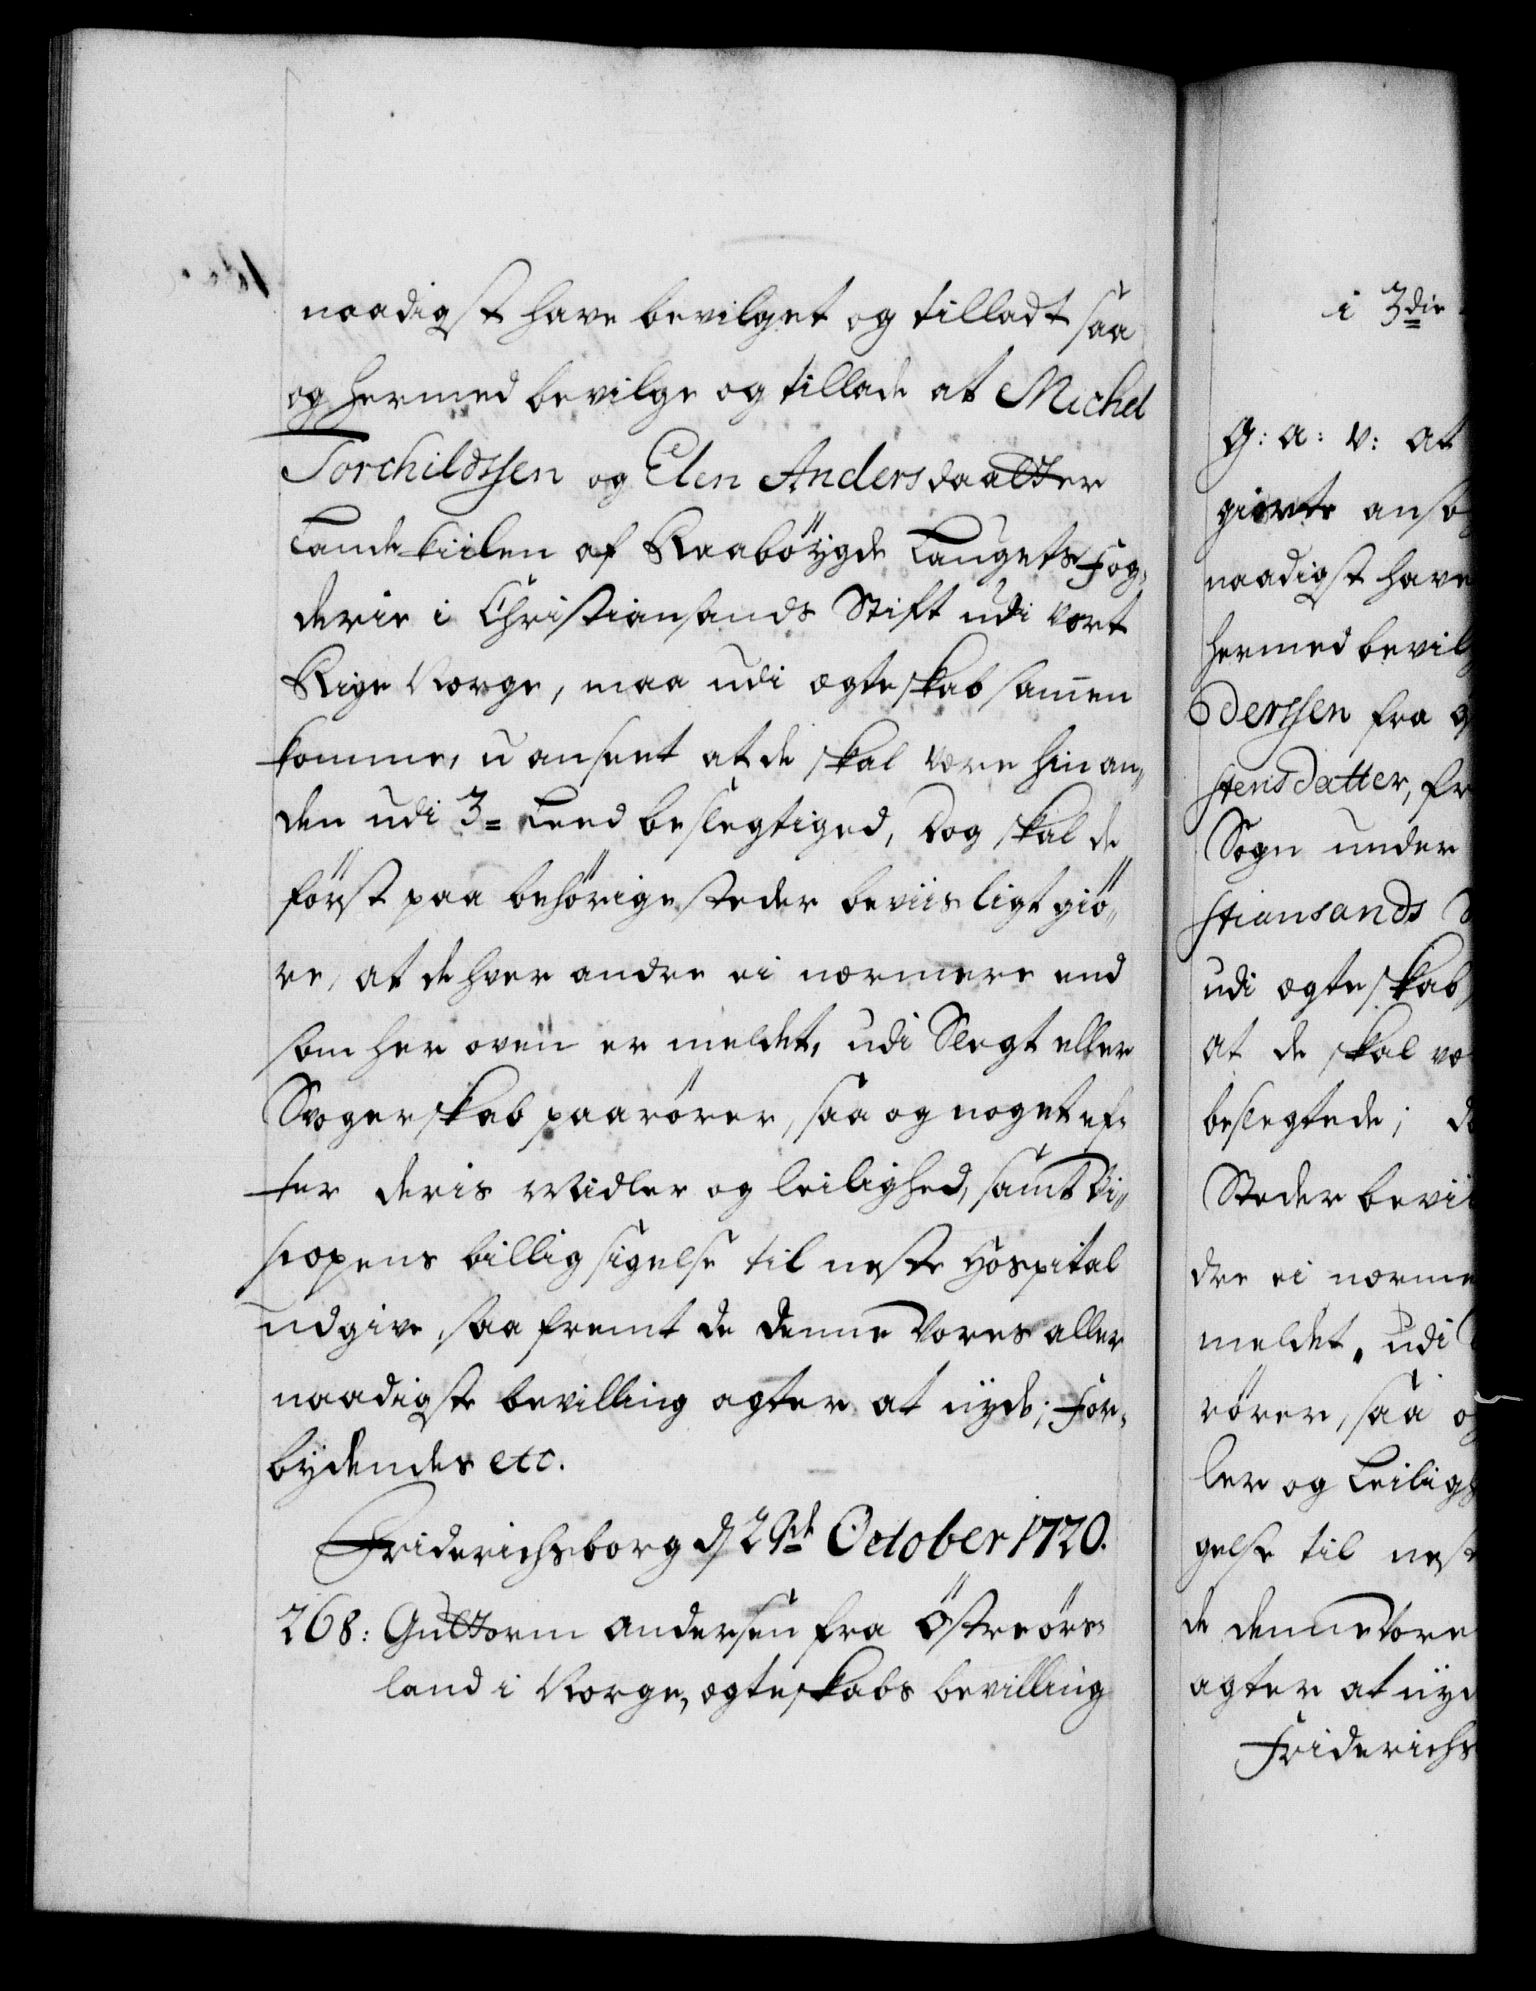 naadigst have bevilget og tilladt saa
og hermed bevilge og tillade at Michel
Torchildssen og Elen Andersdaatter
Landekiilen af Raabøÿgde Laugets Fog„
derie i Christiansands Stift udi vort
Rige Norge, maa udi ægteskab samen
komme, u anseet at de skal være hinan„
den udi 3= Leed beslegtiged, Dog skal de
först paa behörige steder beviisligt giö„
re, at de hver andre ei nærmere end
som her oven er meldet, udi Slegt eller
Svogerskab paarörer, saa og noget ef„
ter deris Midler og leilighed, samt Bi„
scopens billig sigelse til neste Hospital
udgive, saa fremt de denne Vores aller
naadigste bevilling agter at nÿde; For„
bÿdendes etc.
Friderichsborg d/ 29de October 1720.
268: Guttorm Andersen fra Östreörs„
land i Norge, ægteskabs bevilling
i 3die
G: a: V: at
giorte ansø
naadigst have
hermed bevilg
derssen fra
stensdatter, fr
Sogn under
stiansands
udi ægteskab
at de skal væ
beslegtede;
Steder bevii
dre ei nærme
meldet, udi
rörer, saa og
ler og Leiligh
gelse til nest
de denne Vore
agter at nÿd
Friderichs